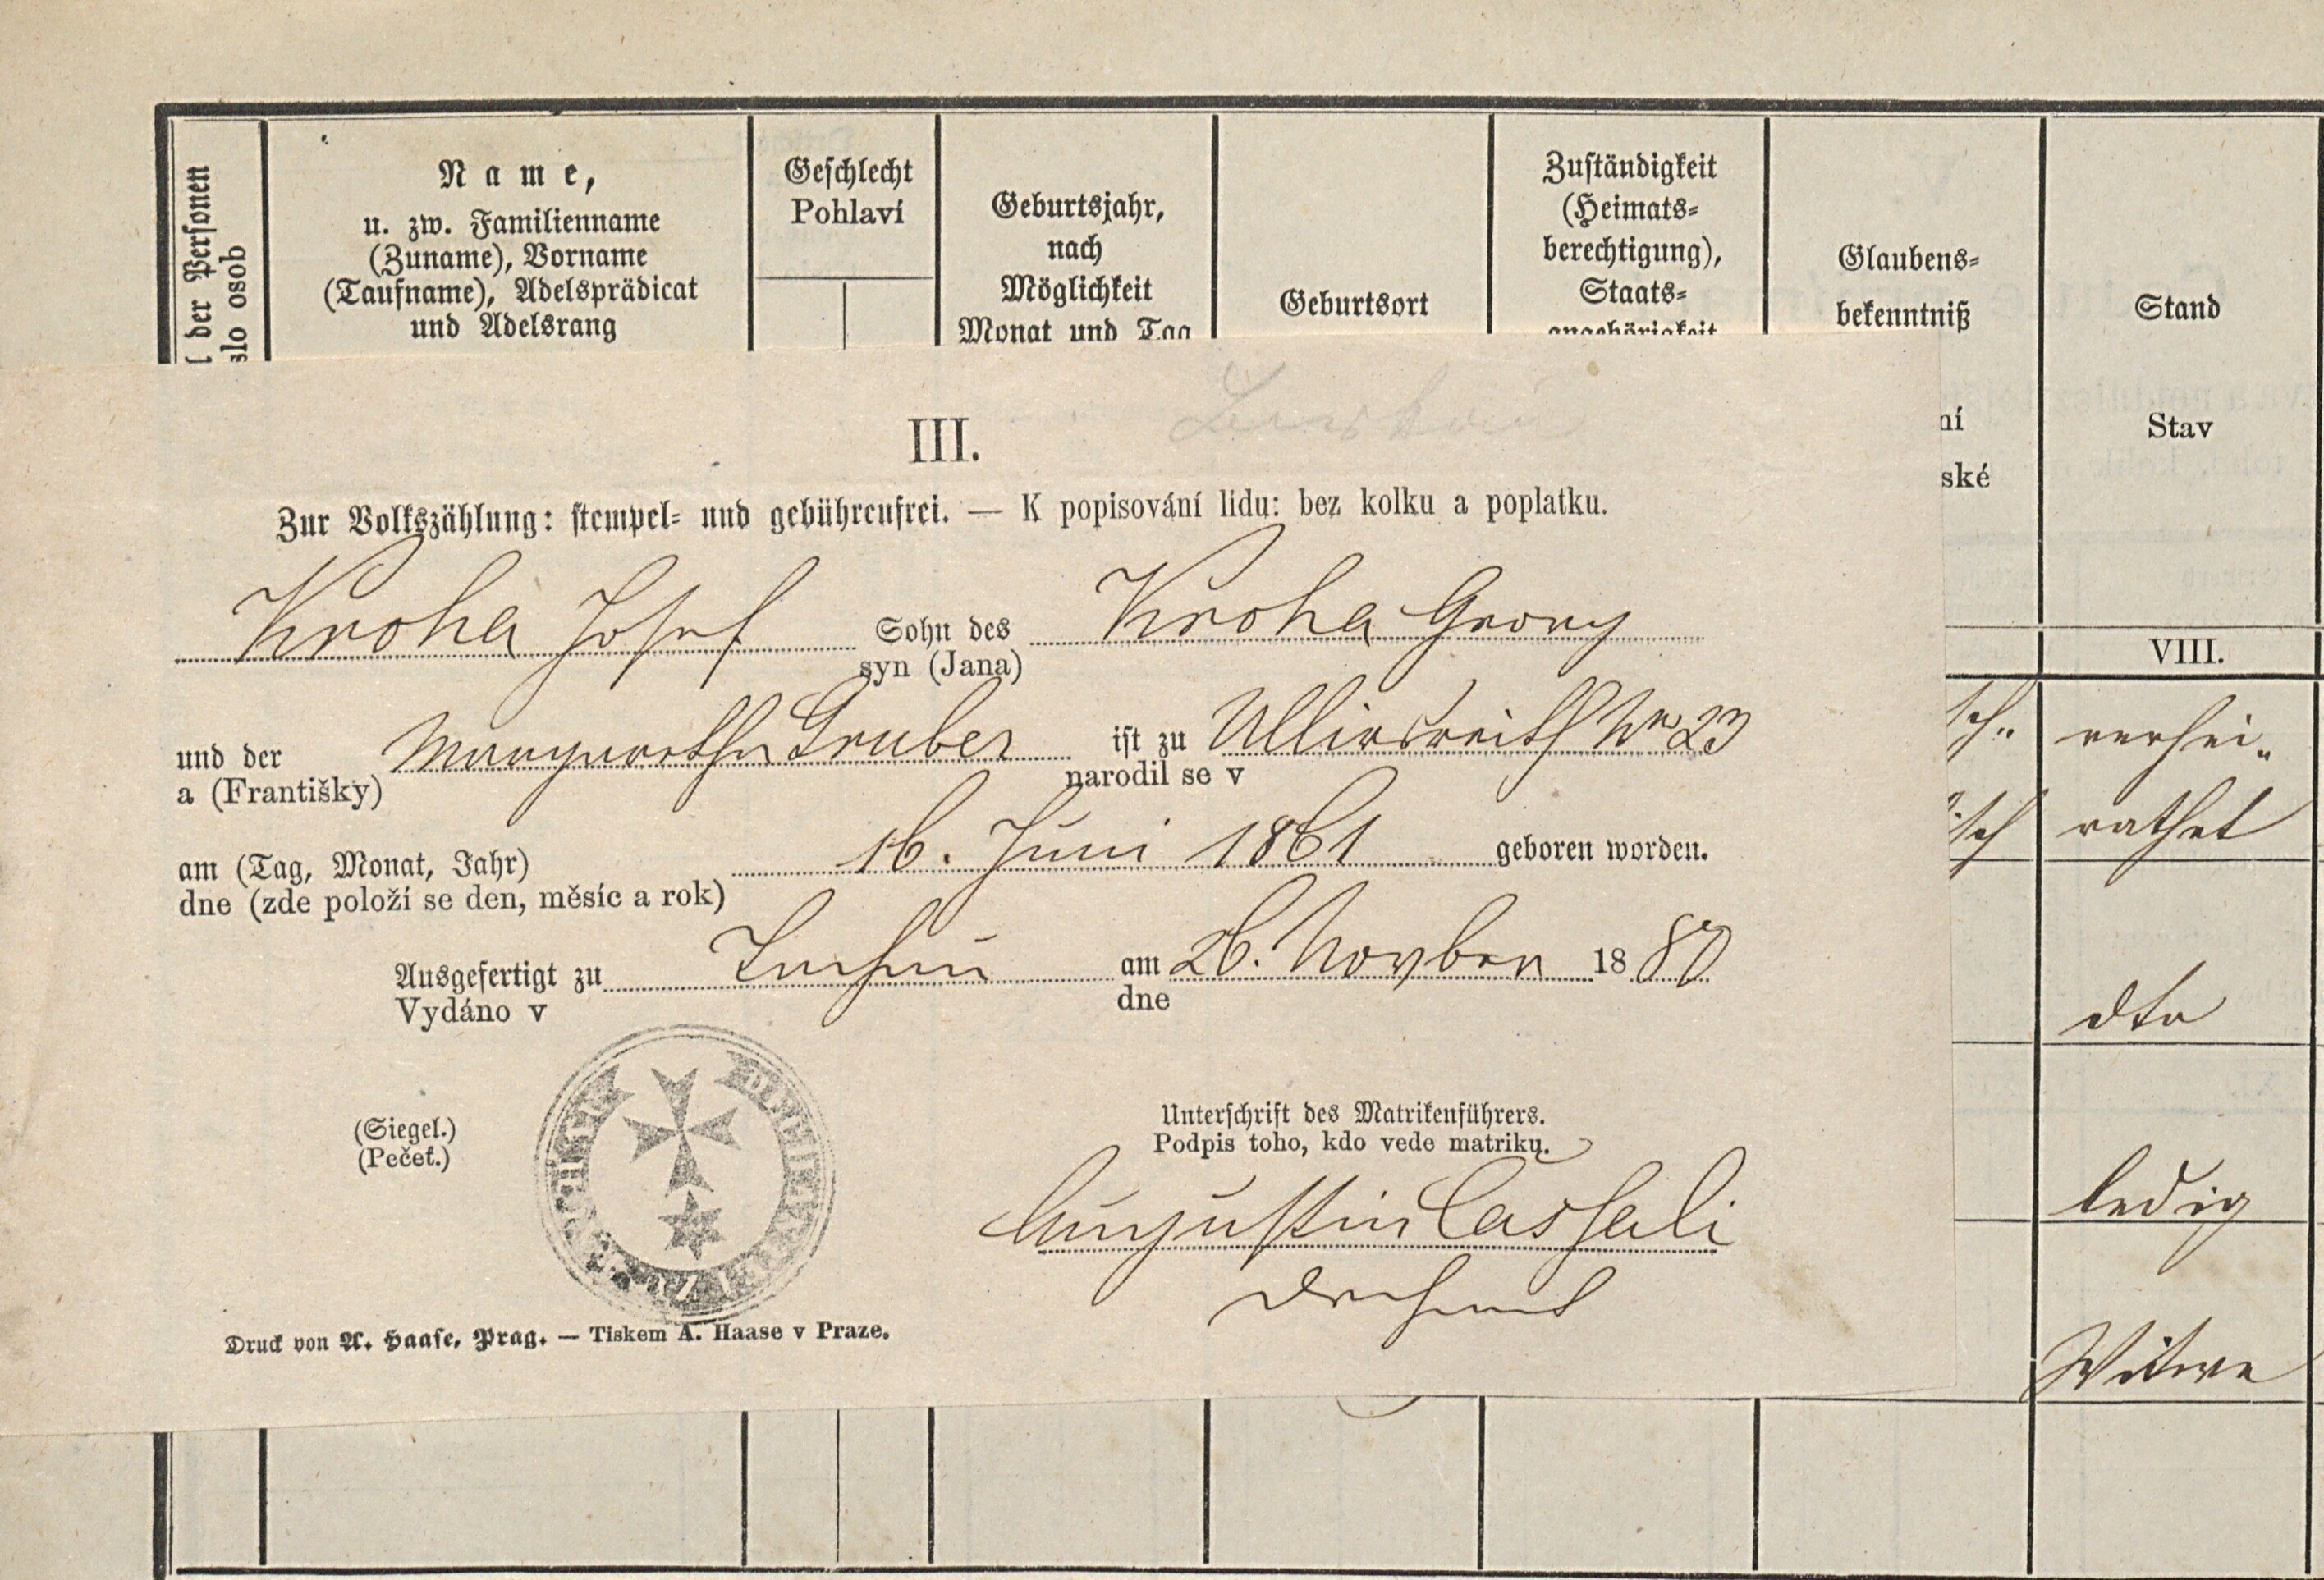 l der Personen
slo osob
Name,
u. zw. Familienname
(Zuname), Vorname
(Taufname), Adelsprädicat
und Adelsrang
Geschlecht
Pohlaví
Geburtsjahr,
nach
Möglichkeit
Monat und Tag
Geburtsort
Zuständigkeit
(Heimats-
berechtigung),
Staats-
angehörigkeit
Glaubens-
bekenntniß
ní
ské
Stand
Stav
VIII.
III.
Zur Volkszählung: stempel- und gebührenfrei. — K popisování lidu: bez kolku a poplatku.
Kroha Josef Sohn des Kroha Georg
syn (Jana)
und der Margaretha Gruber ist zu Ulliersreith Nr 23
a (Františky) narodil se v
am (Tag, Monat, Jahr) 16. Juni 1861 geboren worden.
dne (zde položí se den, měsíc a rok)
Ausgefertigt zu Tachau am 26. Novber 1880
Vydáno v dne
(Siegel.)
(Pečeť.)
Unterschrift des Matrikenführers.
Podpis toho, kdo vede matriku.
Augustin Cassali
Dechant
Druck von A. Haase, Prag. — Tiskem A. Haase v Praze.
verhei„
rathet
dto
ledig
Witwe